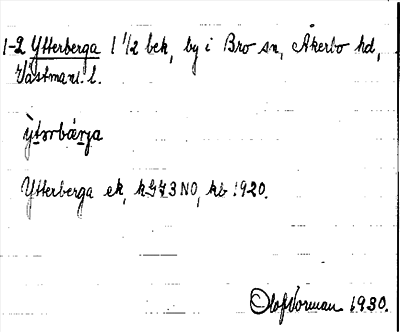 1-2 Ytterberga 1 1/2 bek, by i Bro sn, Åkerbo hd,
Västmanl. l.
ỳtərbärja
Ytterberga ek, kGZ3NO, kb 1920.
Olof Norman 1930.